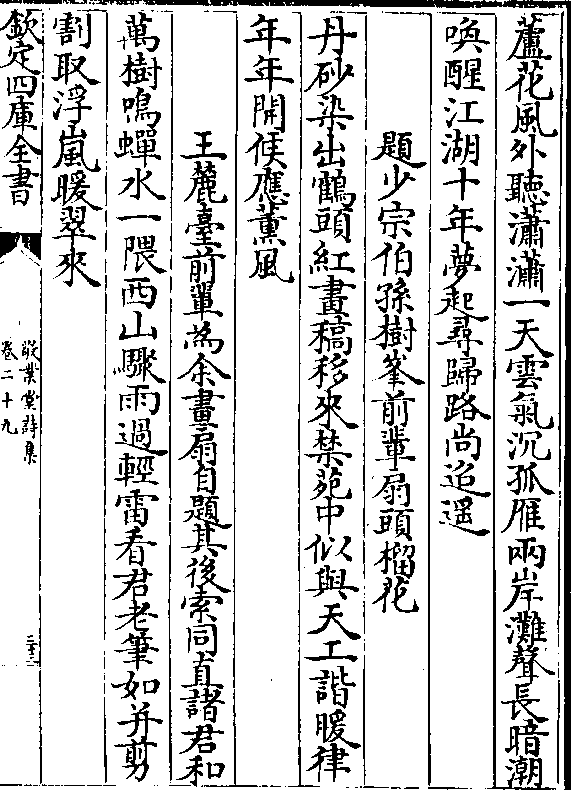 蘆花風外聽瀟瀟一天雲氣沉孤雁兩岸灘聲長暗潮
喚醒江湖十年夢起尋歸路尚迢遥
題少宗伯孫樹峯前輩扇頭榴花
丹砂染出鶴頭紅畫稿移來禁苑中似與天工諧暖律
年年開候應薰風
王麓臺前輩為余畫扇自題其後索同直諸君和
萬樹鳴蟬水一隈西山驟雨過輕雷看君老筆如并剪
割取浮嵐暖翠來
欽定四庫全書
敬業堂詩集
卷二十九